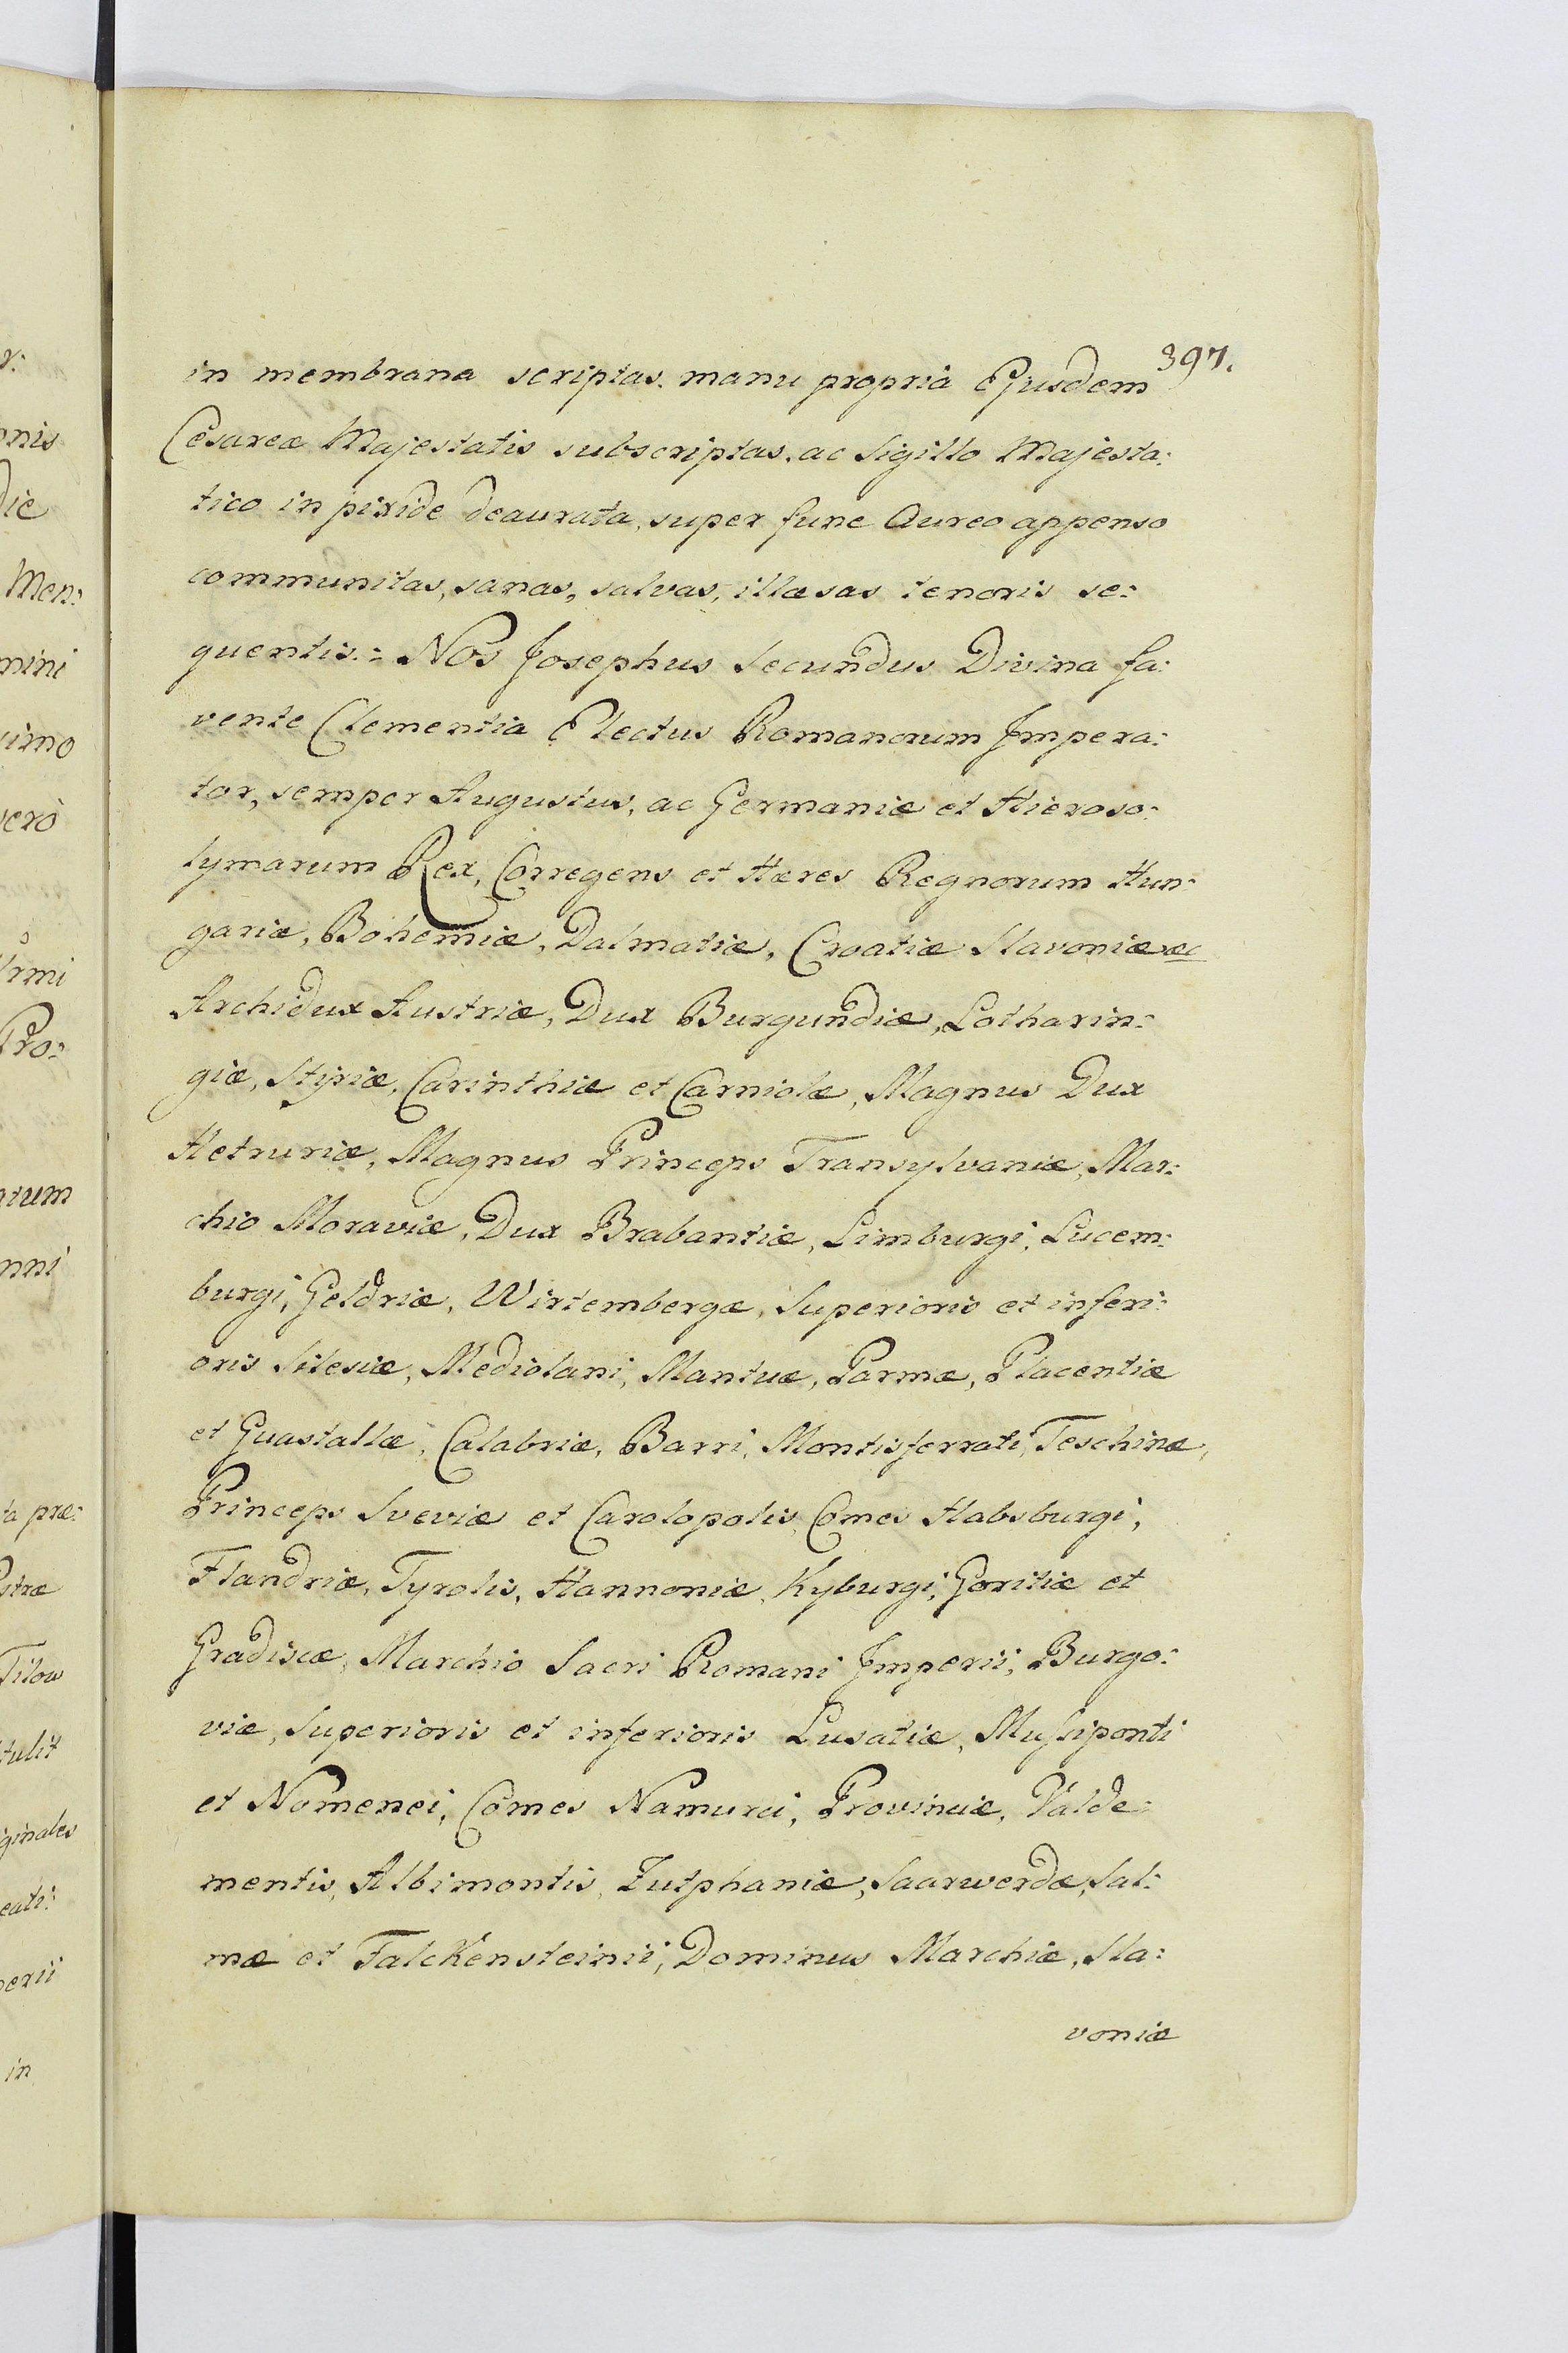 397.
in membrana scriptas. manu propria Ejusdem
Cesareæ Majestatis subscriptas. ac Sigillo Majesta:
tico in pixide deaurata, super fune Aureo appenso
communitas, sanas, salvas, illæsas tenoris se:
quentis.: Nos Josephus Secundus Divina fa:
vente Clementia Electus Romanorum Impera:
tor, semper Augustus, ac Germaniæ et Hieroso:
lymarum Rex, Corregens et Hæres Regnorum Hun:
gariæ, Bohemiæ, Dalmatiæ, Croatiæ Slavoniæ &c
Archidux Austriæ, Dux Burgundiæ, Lotharin:
giæ, Styriæ, Carinthiæ et Carniolæ, Magnus Dux
Hetruriæ, Magnus Princeps Transylvaniæ, Mar:
chio Moraviæ, Dux Brabantiæ, Limburgi, Lucem:
burgi, Geldriæ, Wirtembergæ, Superioris et inferi:
oris Silesiæ, Mediolani, Mantuæ, Parmæ, Placentiæ
et Guastallæ, Calabriæ, Barri, Montisferrati, Teschinæ,
Princeps Sveviæ et Carolopolis, Comes Habsburgi,
Flandriæ, Tyrolis, Hannoniæ, Kyburgi, Goritiæ et
Gradiscæ, Marchio Sacri Romani Imperii, Burgo:
viæ, Superioris et inferioris Lusatiæ, Mussiponti
et Nomenei, Comes Namurci, Provinciæ, Valde:
mentis, Albimontis, Zutphaniæ, Saarwerdæ, Sal:
mæ et Falckensteinii, Dominus Marchiæ, Sla:
voniæ
onis
die
Men:
mini
simo
verò
Pro:
atum
nni
ta præ:
stræ
Tilow
tulit
ginales
eati:
perii
in